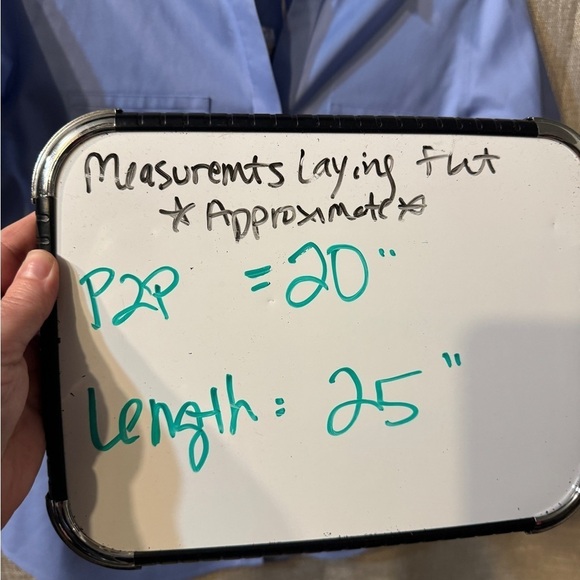 Measuremts Laying flat
* Approximate *
P2P = 20"
Length: 25"